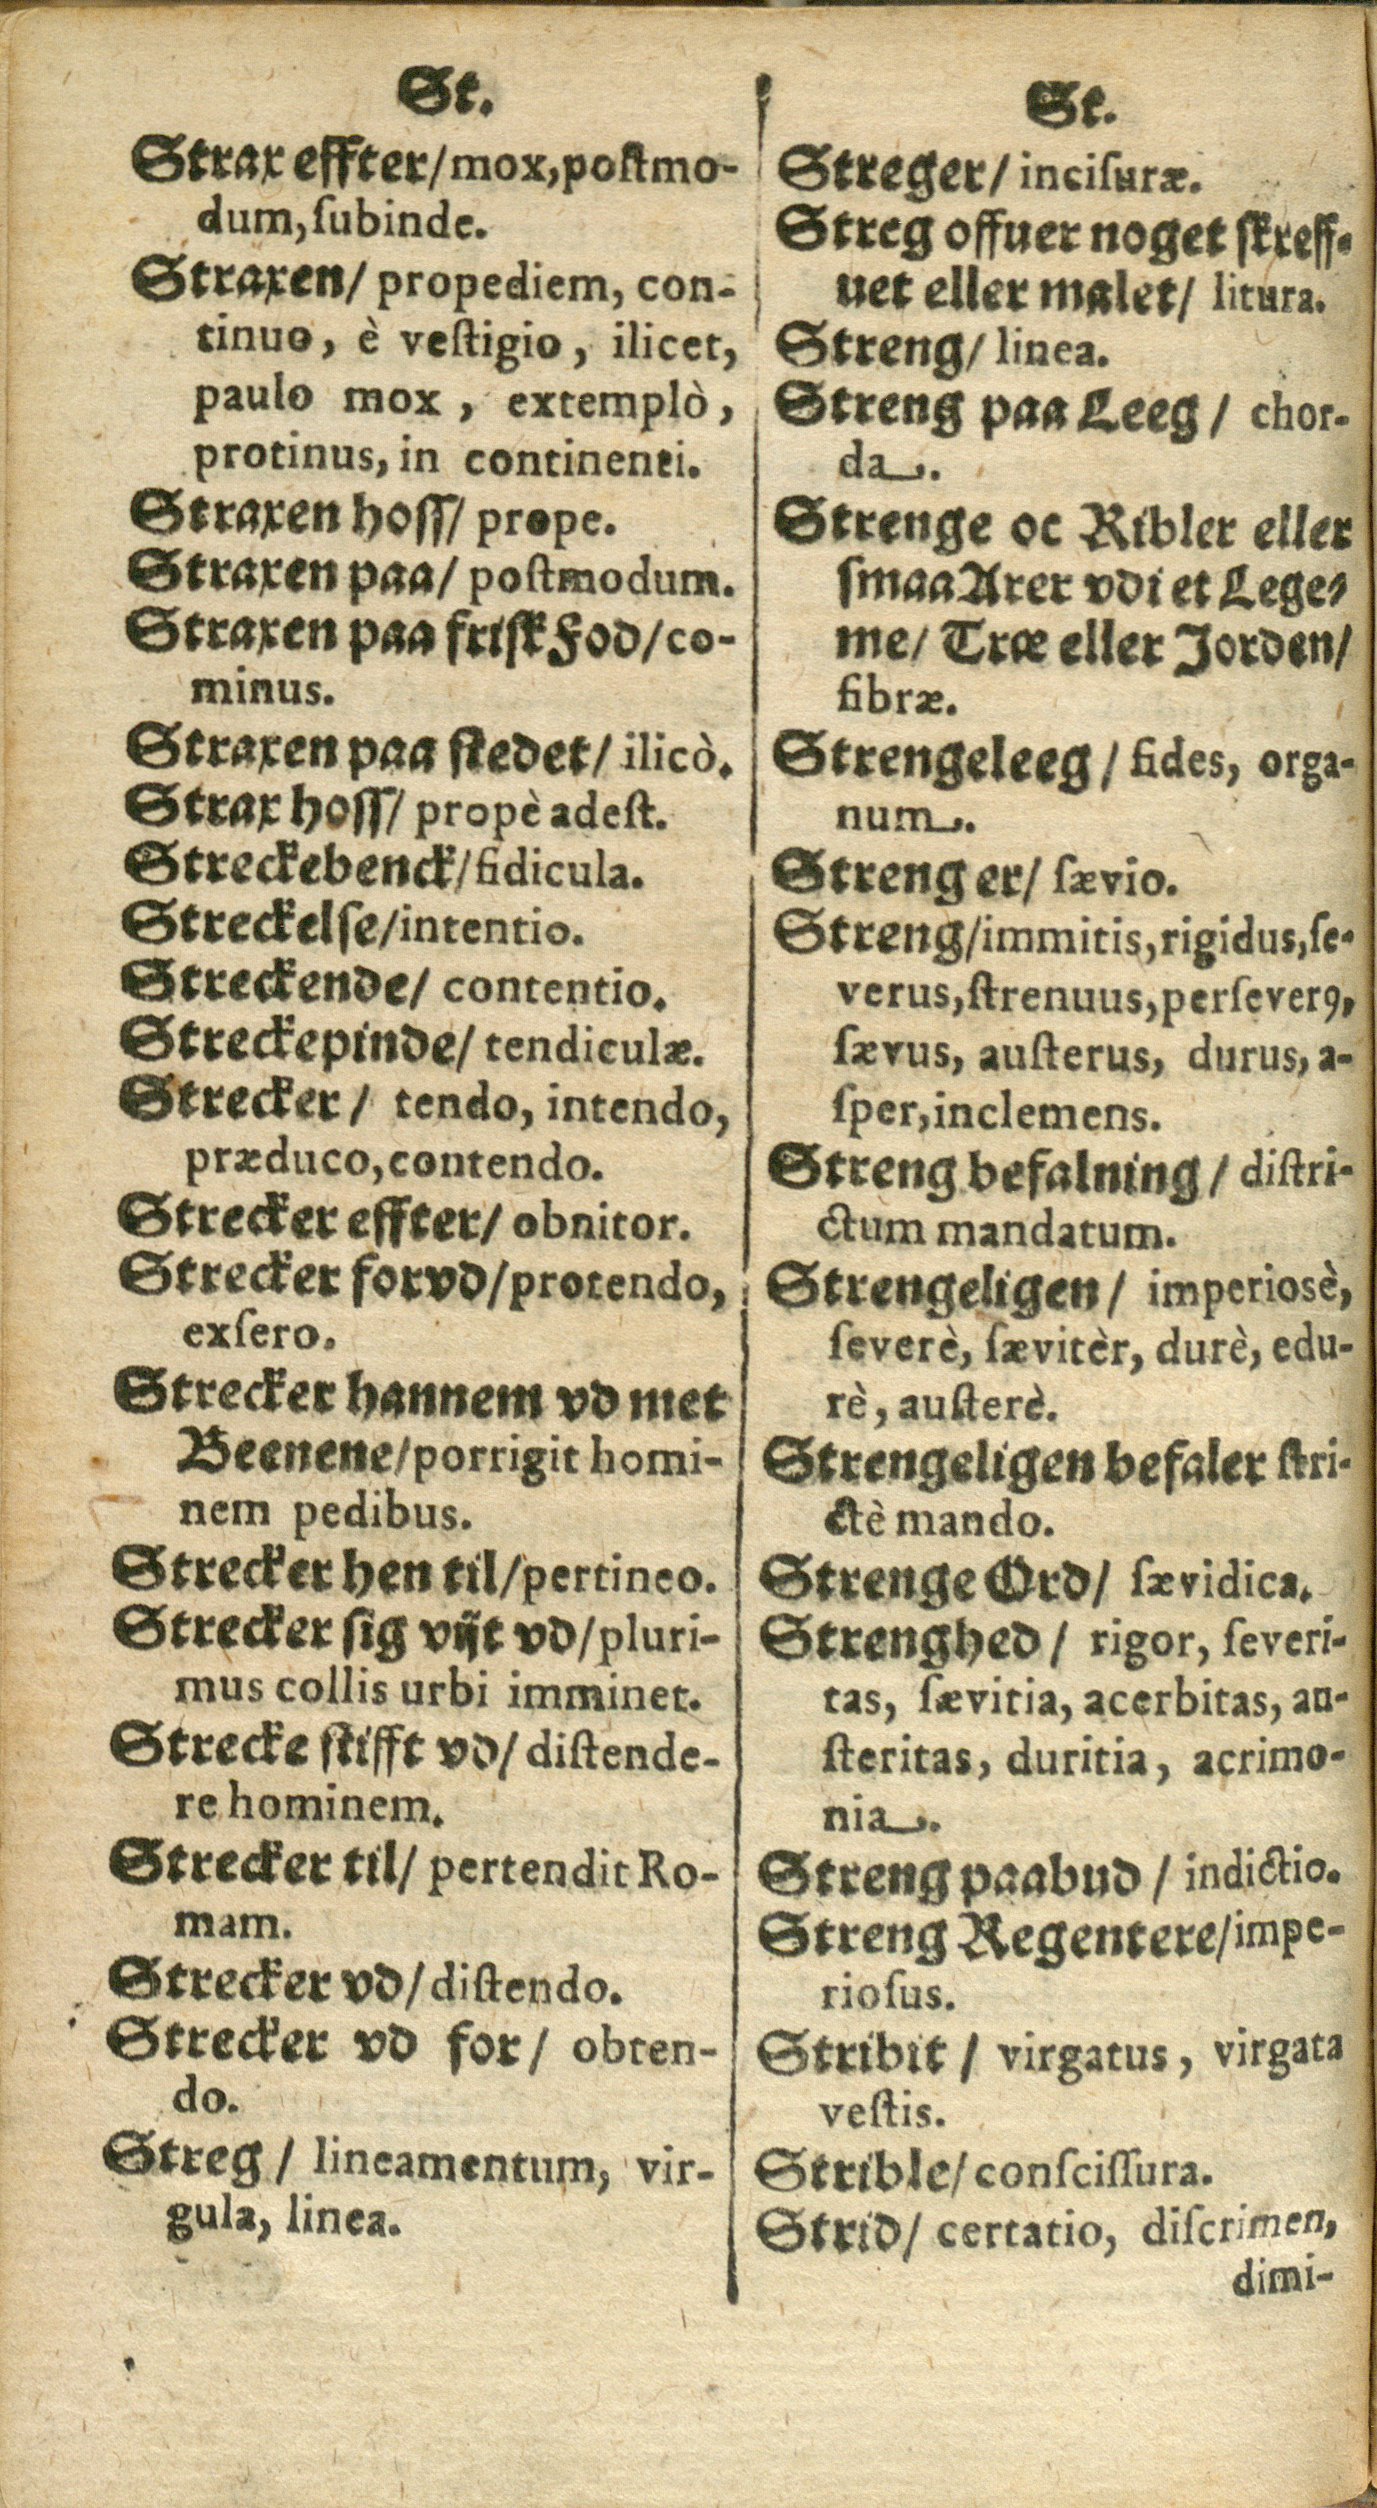 St.
Strax effter/mox,poſtmo-
dum,ſubinde.
Straxen/ propediem, con-
tinuo, è veſtigio, ilicet,
paulo mox, extemplò,
protinus, in continenti.
Straxen hoſſ/ prope.
Straxen paa/ poſtmodum.
Straxen paa friſk Fod/co-
minus.
Straxen paa ſtedet/ ilicò.
Strax hoſſ/ propè adeſt.
Streckebenck/fidicula.
Streckelſe/intentio.
Streckende/ contentio.
Streckepinde/ tendiculæ.
Strecker/ tendo, intendo,
præduco,contendo.
Strecker effter/ obnitor.
Strecker forvd/protendo,
exſero.
Strecker hannem vd met
Beenene/porrigit homi-
nem pedibus.
Strecker hen til/pertineo.
Strecker ſig vijt vd/pluri-
mus collis urbi imminet.
Strecke ſtifft vd/ diſtende-
re hominem.
Strecker til/ pertendit Ro-
mam.
Strecker vd/diſtendo.
Strecker vd for/ obten-
do.
Streg/ lineamentum, vir-
gula, linea.
St.
Streger/ inciſuræ.
Streg offuer noget ſkreff-
uet eller malet/ litura.
Streng/ linea.
Streng paa Leeg/ chor-
da.
Strenge oc Ribler eller
ſmaa Arer vdi et Lege-
me/ Træ eller Jorden/
fibræ.
Strengeleeg/ fides, orga-
num.
Streng er/ ſævio.
Streng/immitis,rigidus,ſe-
verus,ſtrenuus,perſeverꝯ,
ſævus, auſterus, durus, a-
ſper,inclemens.
Streng befalning/ diſtri-
ctum mandatum.
Strengeligen/ imperiosè,
ſeverè, ſævitèr, durè, edu-
rè, auſterè.
Strengeligen befaler ſtri-
ctè mando.
Strenge Ord/ ſævidica.
Strenghed/ rigor, ſeveri-
tas, ſævitia, acerbitas, au-
ſteritas, duritia, acrimo-
nia.
Streng paabud/ indictio.
Streng Regentere/impe-
rioſus.
Stribit/ virgatus, virgata
veſtis.
Strible/ conſciſſura.
Strid/ certatio, diſcrimen,
dimi-